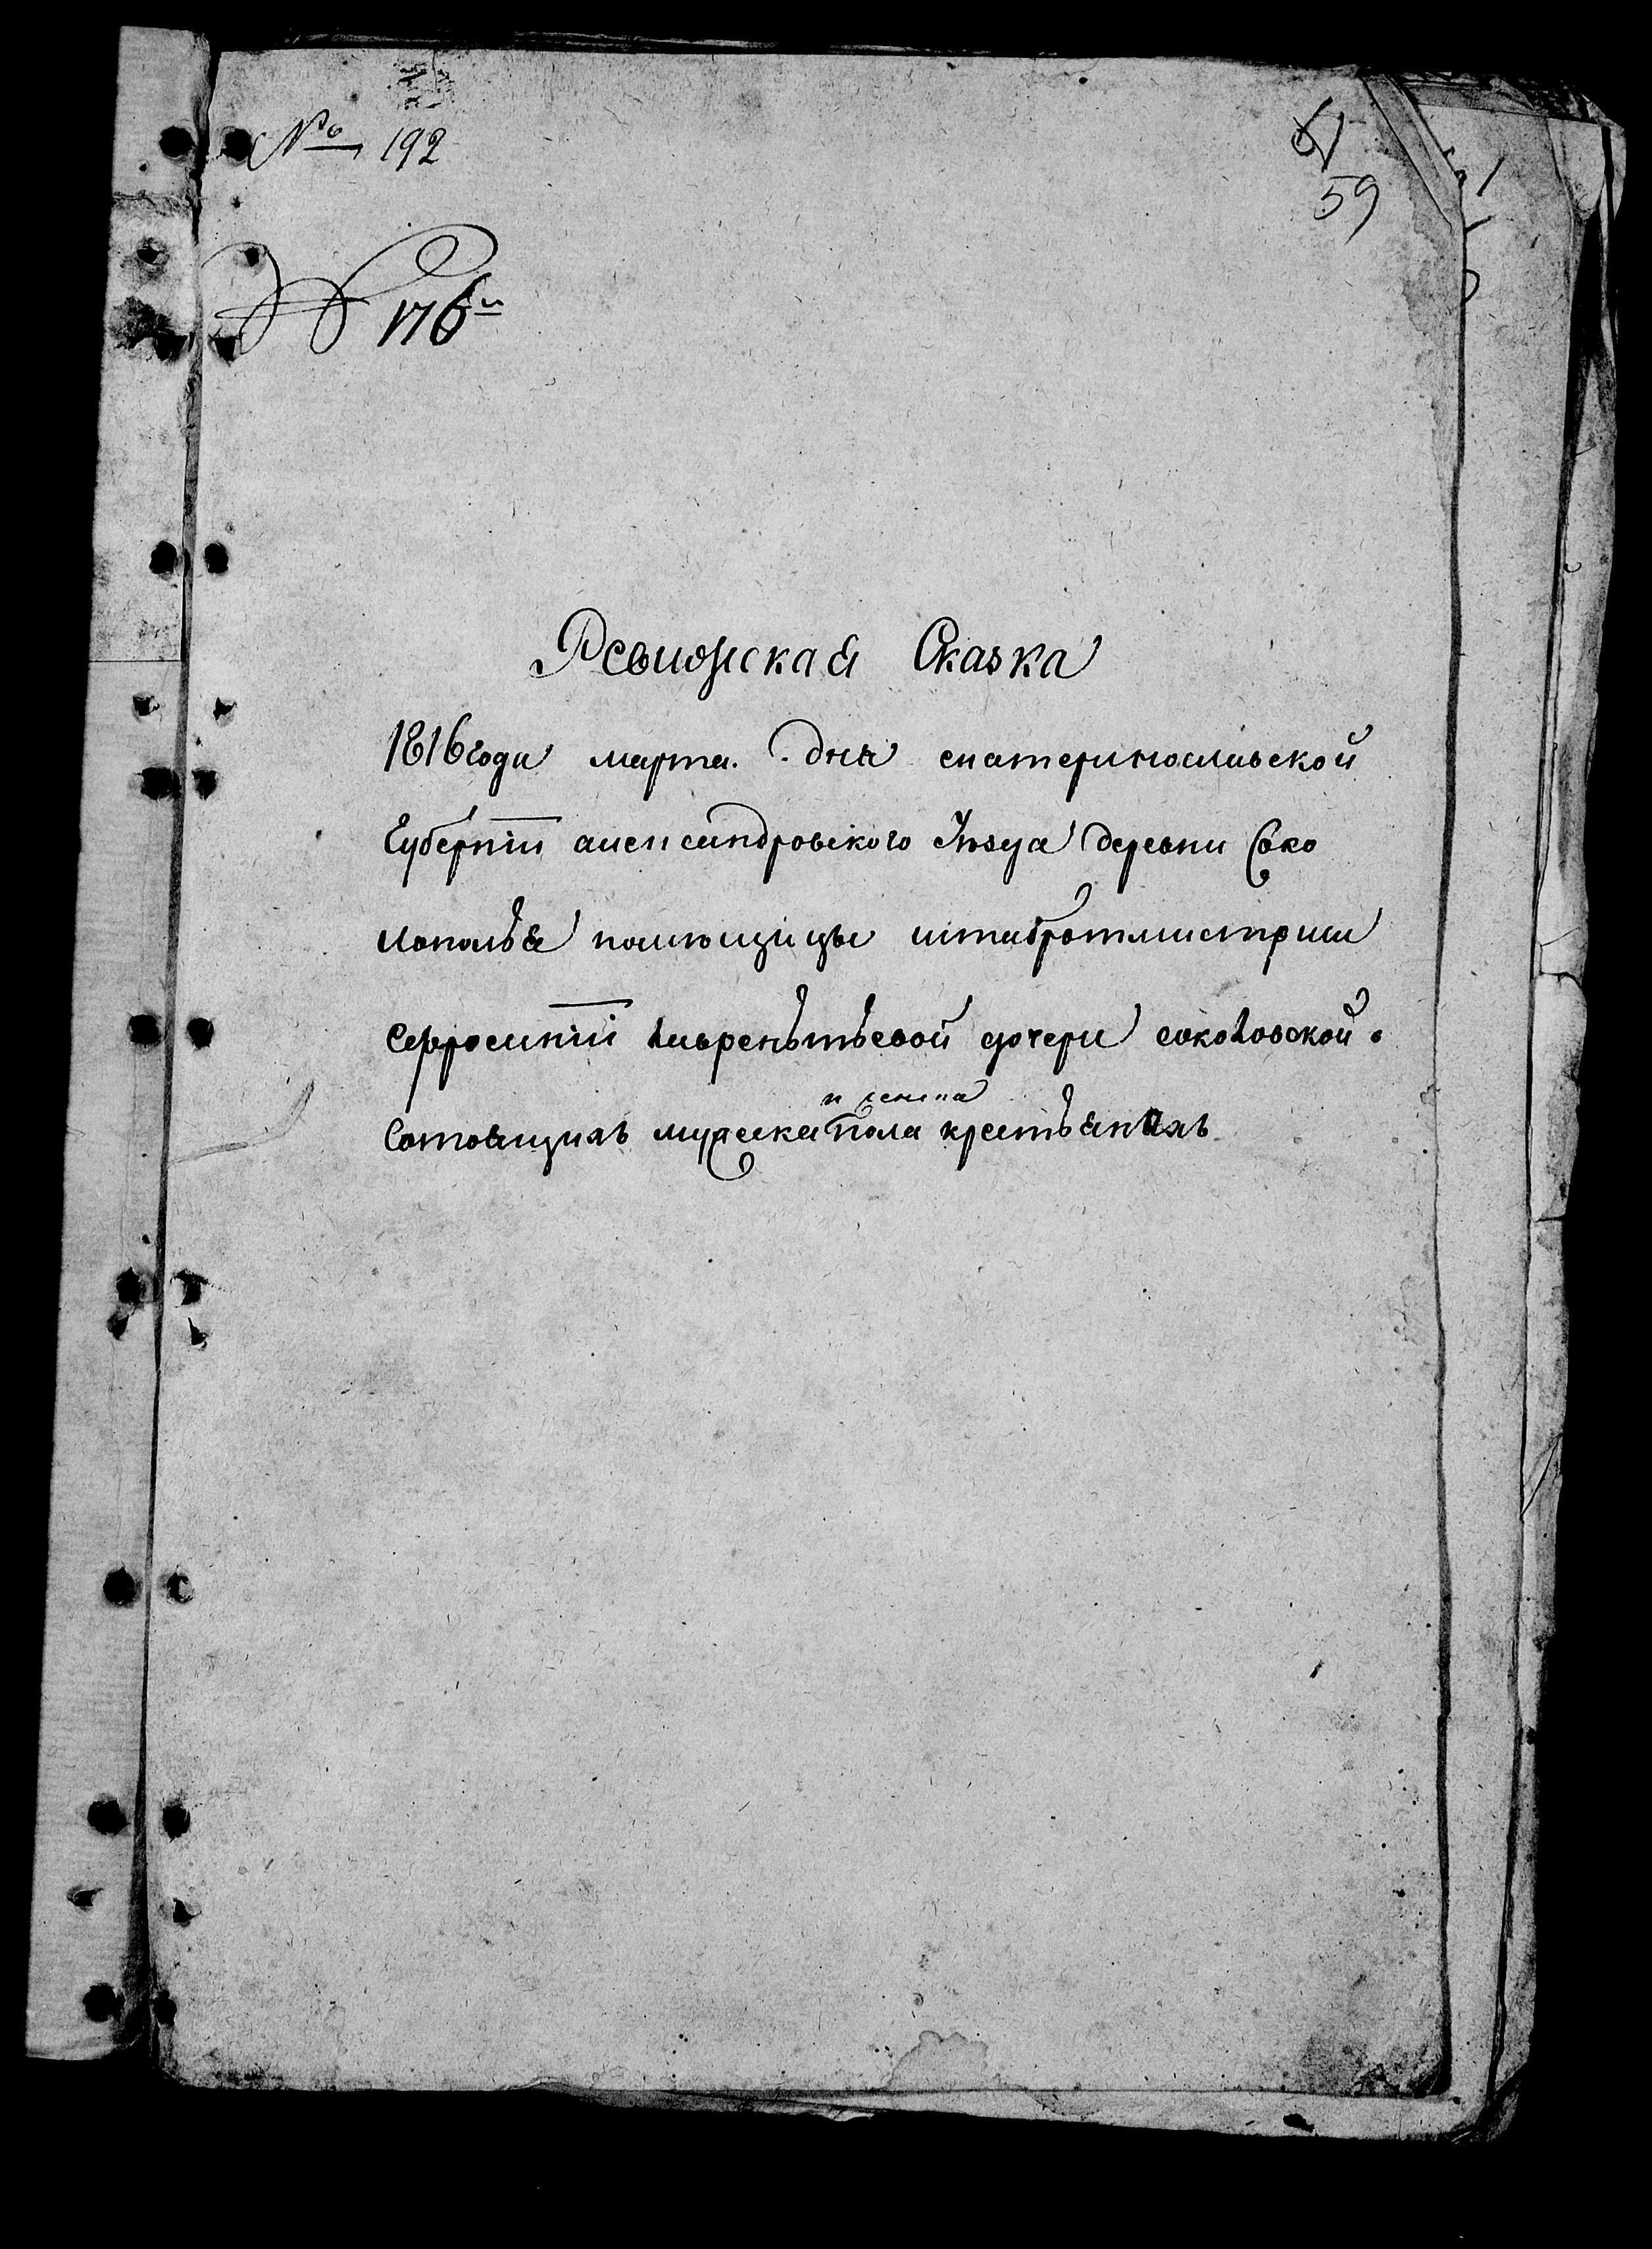 № 192
59
№ 176й
Ревижская Сказка
1816 года марта. дня екатеринославской
Губернiи александровского Уѣзда деревни Соко
лополья помѣщицы штабротмистрши
Сефросинiи лаврентьевой дочери соколовской.
и женска
Состоящихъ мужска пола крестьянахъ